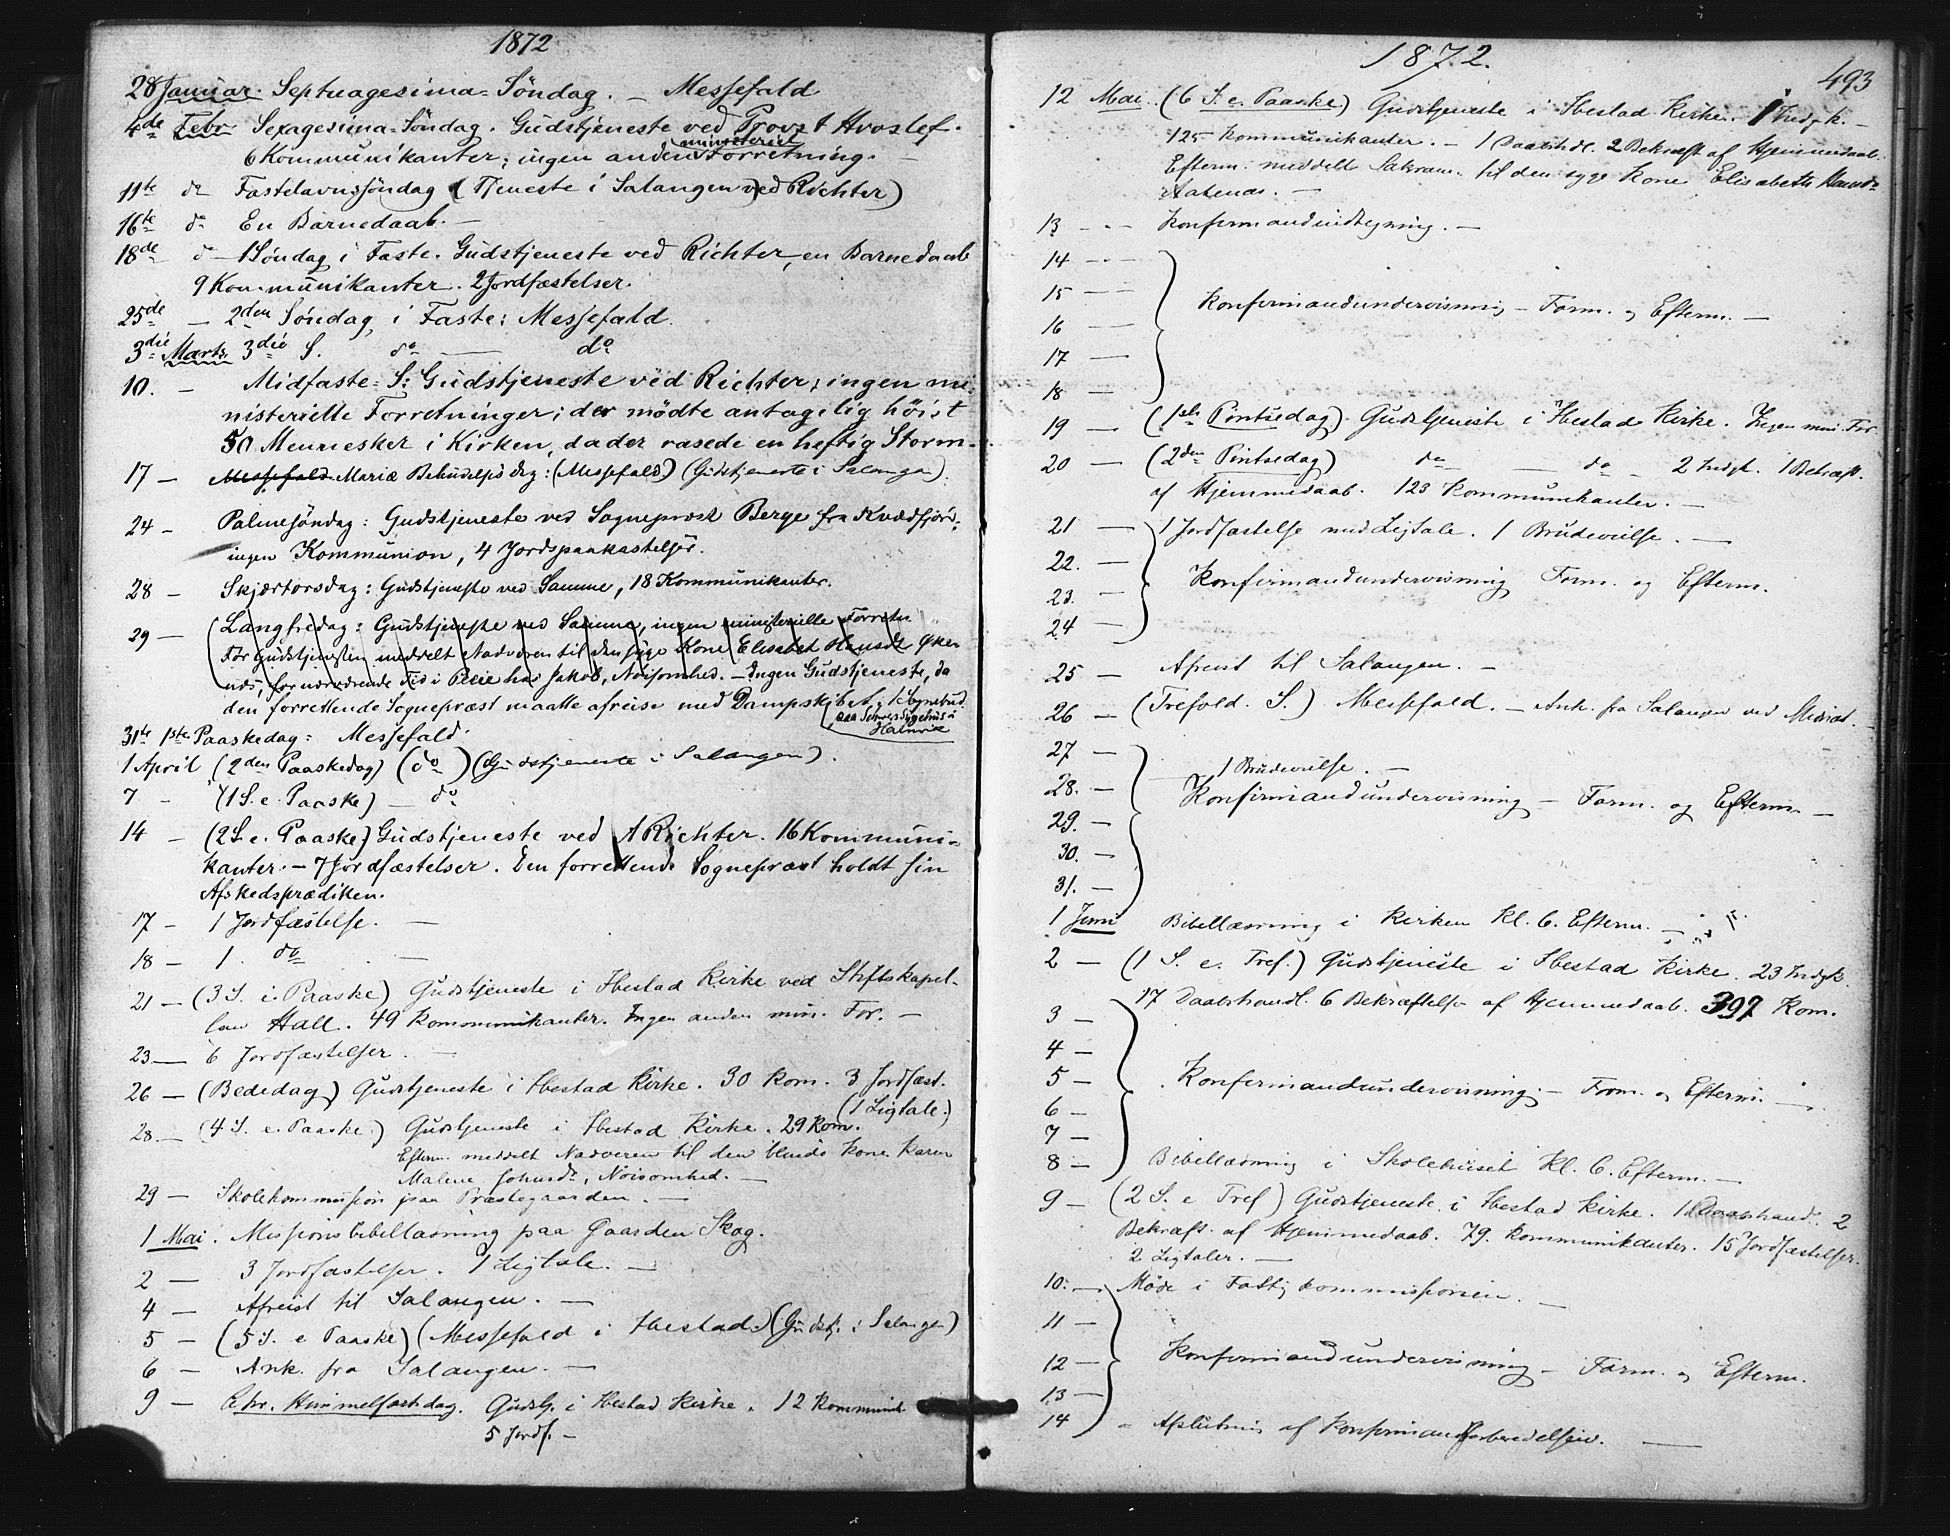 1872
28 Januar. Septuagesima-Söndag. – Messefald
4de Febr Sexagesima-Söndag. Gudstjeneste ved Provst Hvoslef.
ministeriel
6 Kommunikanter; ingen anden Forretning. –
11te do Fastelavnssöndag (Tjeneste i Salangen ved Richter)
16te do En Barnedaab. –
18de do 1 Söndag i Faste. Gudstjeneste ved Richter, en Barnedaab
9 Kommunikanter. 2 Jordfæstelser.
25de – 2den Söndag i Faste: Messefald.
3die Marts 3die S. do – do
10. – Midfaste-S: Gudstjeneste ved Richter; ingen mi-
nisterielle Forretninger; der mödte antagelig höist
50 Mennesker i Kirken, da der rasede en heftig Storm.
17 – Messefald Mariæ Bebudelsesdag: (Messefald) (Gudstjeneste i Salangen).
24 – Palmesöndag: Gudstjeneste ved Sognepræst Berge fra Kvædfjord;
ingen Kommunion, 4 Jordspaakastelser.
28 – Skjærtorsdag: Gudstjeneste ved Samme, 18 Kommunikanter.
29 – (Langfredag: Gudstjeneste ved Samme, ingen ministerielle Forretn.
För Gudstjenesten meddelt Nadveren til den syge Kone Elisabet Hansdr
for nærværende Tid i Pleie hos Jakob, Nöisomhed. – Ingen Gudstjeneste, da
den forrettende Sognepræst maatte afreise med Dampskibet; 1 Sognebud
Halnvik
31te 1ste Paaskedag: Messefald.
1 April (2den Paaskedag) (do) (Gudstjeneste i Salangen).
7 – (1 S. e. Paaske) – do
14 – (2 S. e. Paaske) Gudstjeneste ved A Richter. 16 Kommuni-
kanter. – 7 Jordfæstelser. Den forrettende Sognepræst holdt sin
Afskedsprædiken.
17 – 1 Jordfæstelse. –
18 – 1. do –
21 – (3 S. e. Paaske) Gudstjeneste i Ibestad Kirke ved Stiftskapel-
lan Hall. 49 Kommunikanter. Ingen anden min. For. –
23 – 6 Jordfæstelser. –
26 – (Bededag) Gudstjeneste i Ibestad Kirke. 30 Kom. 3 Jordfæst.
(1 Ligtale.)
28. – (4 S. e. Paaske) Gudstjeneste i Ibestad Kirke. 29 Kom.
Efterm. meddelt Nadveren til den blinde Kone Karen
Malene Johnsdr, Nöisomhed. –
29 – Skolekommission paa Præstegaarden. –
1 Mai. Missionsbibellæsning paa Gaarden Skog.
2 – 3 Jordfæstelser. 1 Ligtale. –
4 – Afreist til Salangen. –
5 – (5 S. e Paaske) (Messefald i Ibestad.) (Gudstj. i Salangen)
6 – Ank. fra Salangen. –
9 – Chr. Himmelfartsdag. Gudstj. i Ibestad Kirke. 12 Kommunik.
5 Jordf. –
1872.
493
12 Mai. (6 S. e. Paaske) Gudstjeneste i Ibestad Kirke. 1 Indgk. –
125 Kommunikanter. – 1 Daabshdl. 2 Bekræft af Hjemmedaab.
Efterm. meddelt Sakram. til den syge Kone Elisabeth Hansdr
Aakenæs. –
13 – – Konfirmandindtegning. –
14 – –
15 – – Konfirmandundervisning – Form. og Efterm. –
16 – –
17 –
18 –
19 – (1ste Pintsedag) Gudstjeneste i Ibestad Kirke. Ingen min. For.
20 – (2den Pintsedag) do – do – 2 Indgk. 1 Bekræft.
af Hjemmedaab. 123 Kommunikanter. –
21 – 1 Jordfæstelse med Ligtale. 1 Brudevielse. –
22. –
23. – Konfirmandundervisning Form. og Efterm.
24 –
25 – Afreist til Salangen. –
26 – (Trefold. S.) Messefald. – Ank. fra Salangen ved Midnat. –
27 – 1 Brudevielse. –
28. – Konfirmandundervisning – Form. og Efterm. –
29. –
30. –
31. –
1 Juni Bibellæsning i Kirken Kl. 6. Efterm. –
2 – (1 S. e. Tref.) Gudstjeneste i Ibestad Kirke. 23 Indgk.
17 Daabshandl. 6 Bekræftelse af Hjemmedaab. 397 Kom.
3 –
4 –
5 – Konfirmandundervisning – Form. og Efterm. –
6 –
7 –
8 – Bibellæsning i Skolehuset Kl. 6. Efterm. –
9 – (2 S. e Tref) Gudstjeneste i Ibestad Kirke. 1 Daabshand. 2
Bekræft. af Hjemmedaab. 79. Kommunikanter. 15 Jordfæstelser.
2 Ligtaler. –
10. – Möde i Fattigkommissionen. –
11 –
12 – Konfirmandundervisning – Form. og Efterm.
13 –
14 – Afslutning af Konfirmandforberedelsen. –